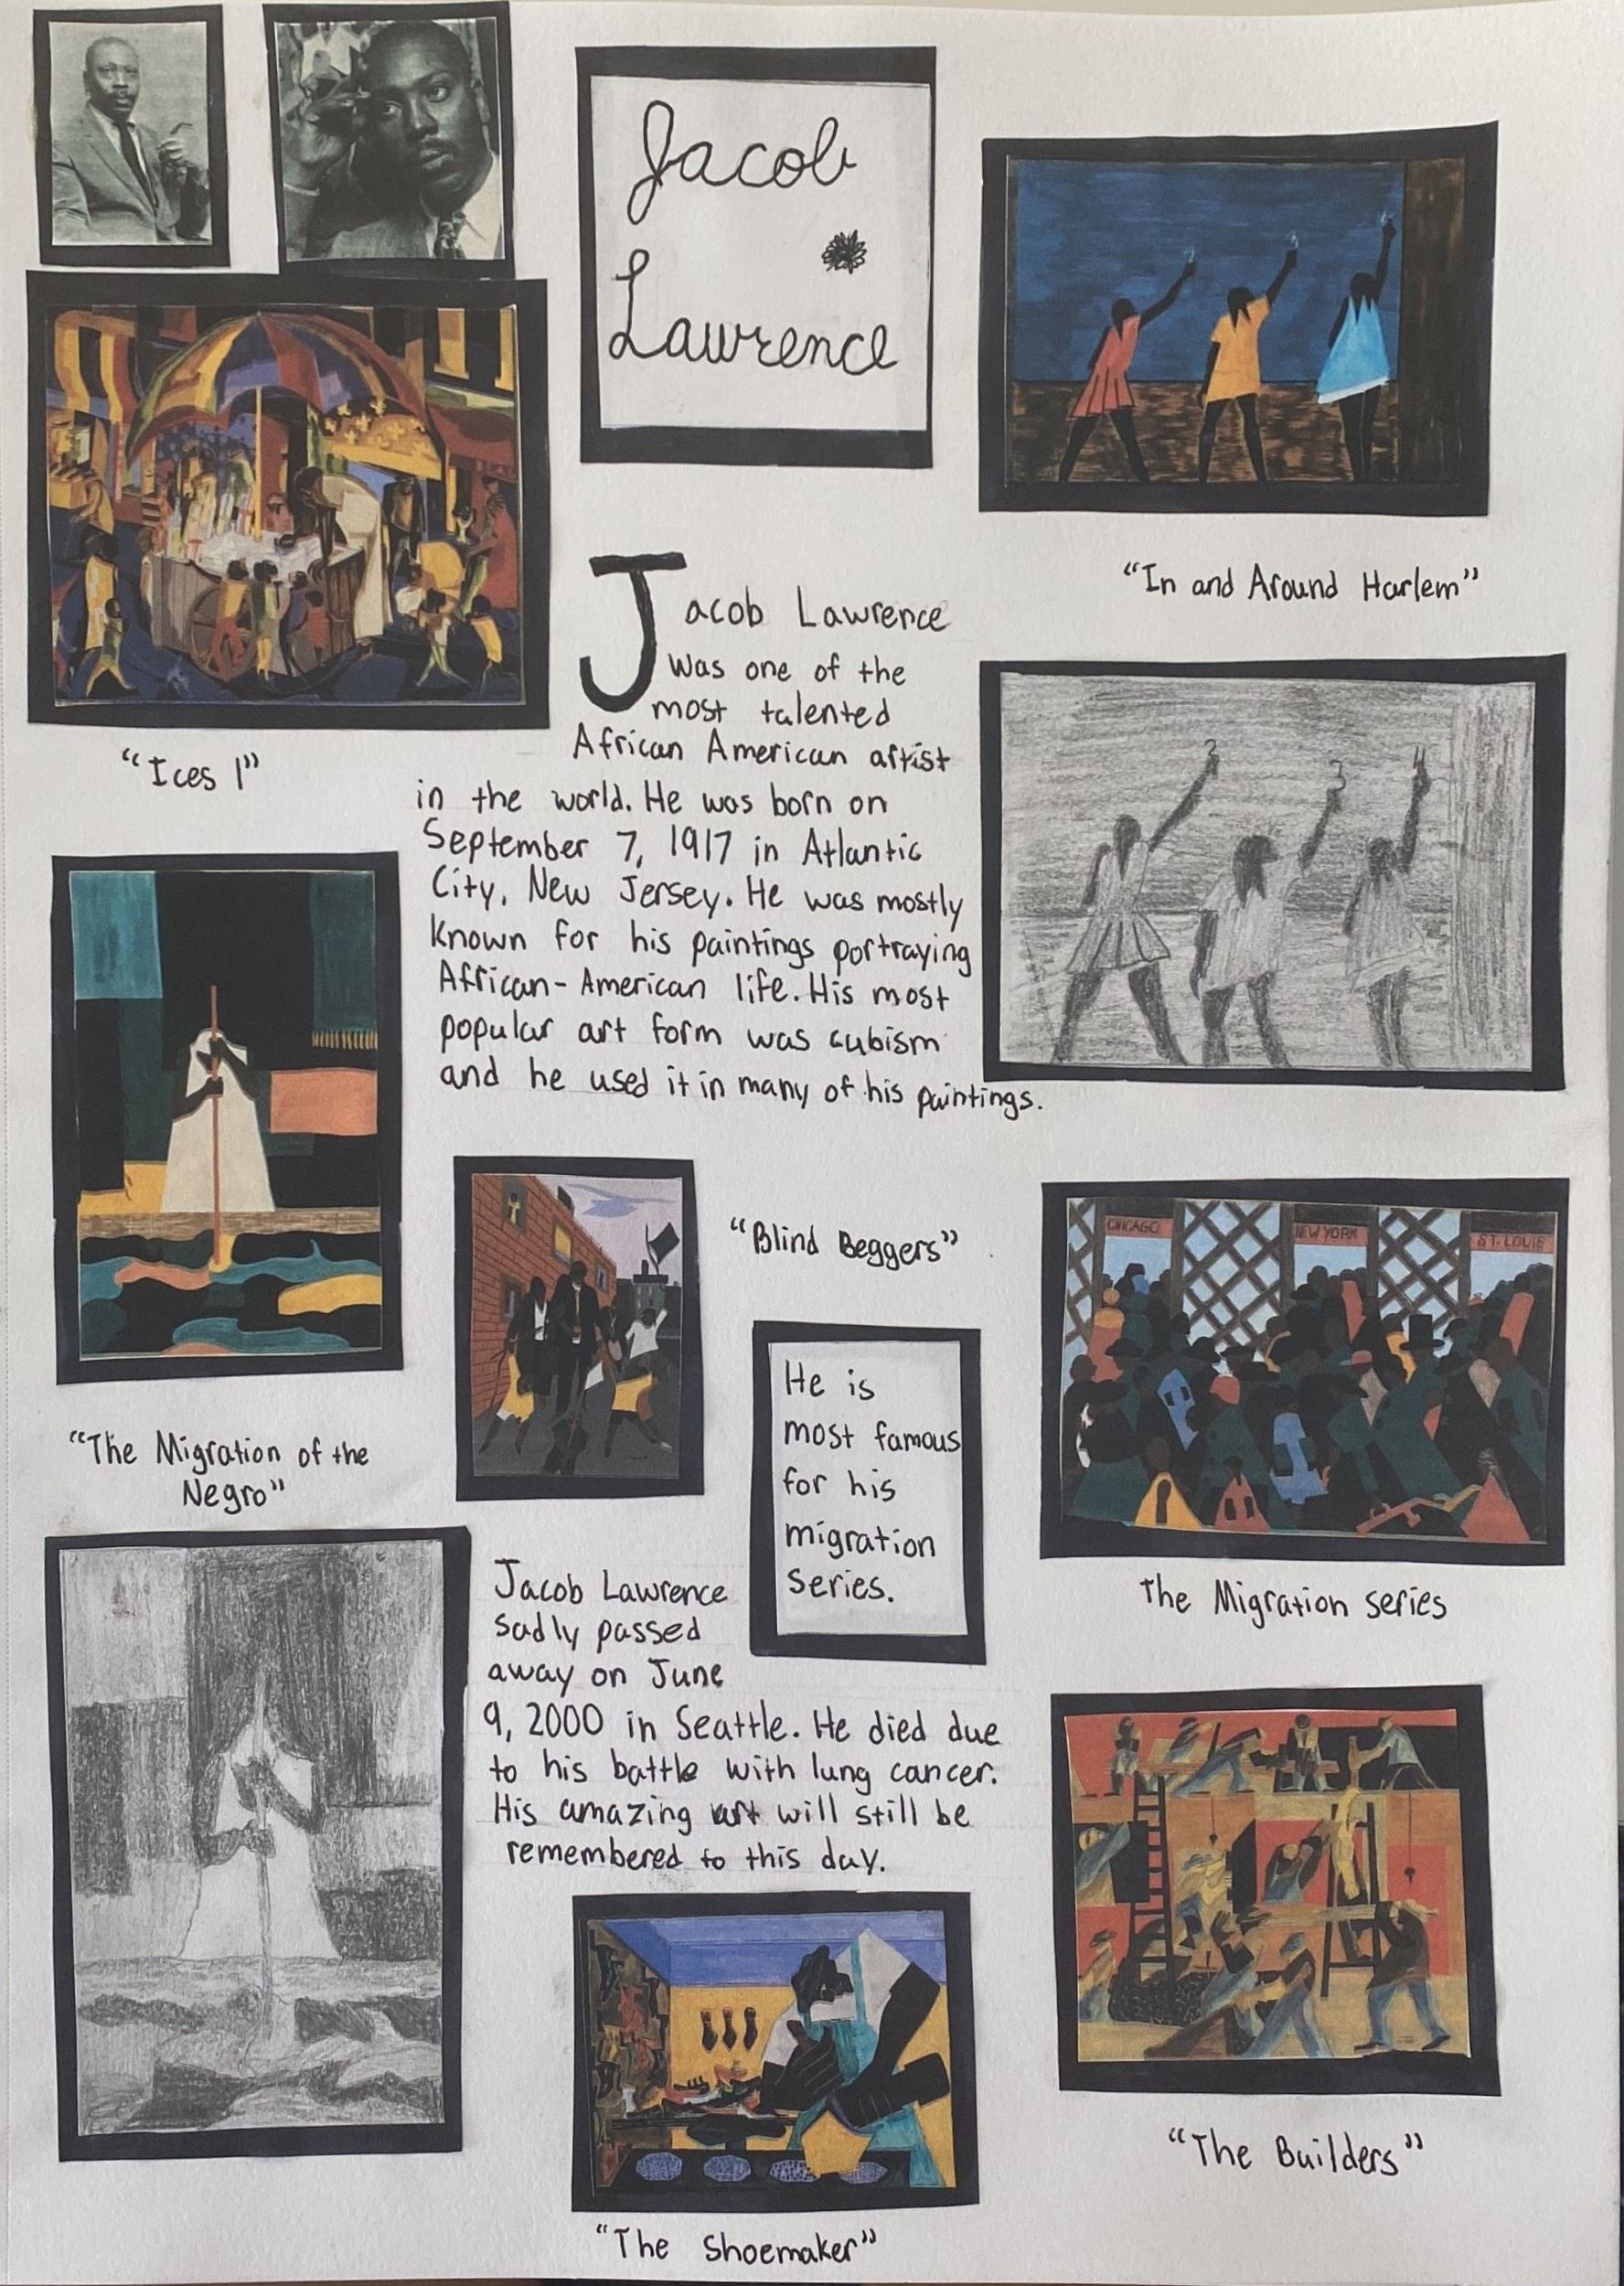 Jacob
Lawrence
"In and Around Harlem"
"Ices 1"
Jacob Lawrence
was one of the
most talented
African American artist
in the world. He was born on
September 7, 1917 in Atlantic
City, New Jersey. He was mostly
known for his paintings portraying
African-American life. His most
popular art form was cubism
and he used it in many of his paintings.
"The Migration of the
Negro"
"Blind Beggers"
He is
most famous
for his
migration
series.
CHICAGO
NEW YORK
ST. LOUIS
The Migration series
Jacob Lawrence
sadly passed
away on June
9, 2000 in Seattle. He died due
to his battle with lung cancer.
His amazing art will still be
remembered to this day.
"The Shoemaker"
"The Builders"